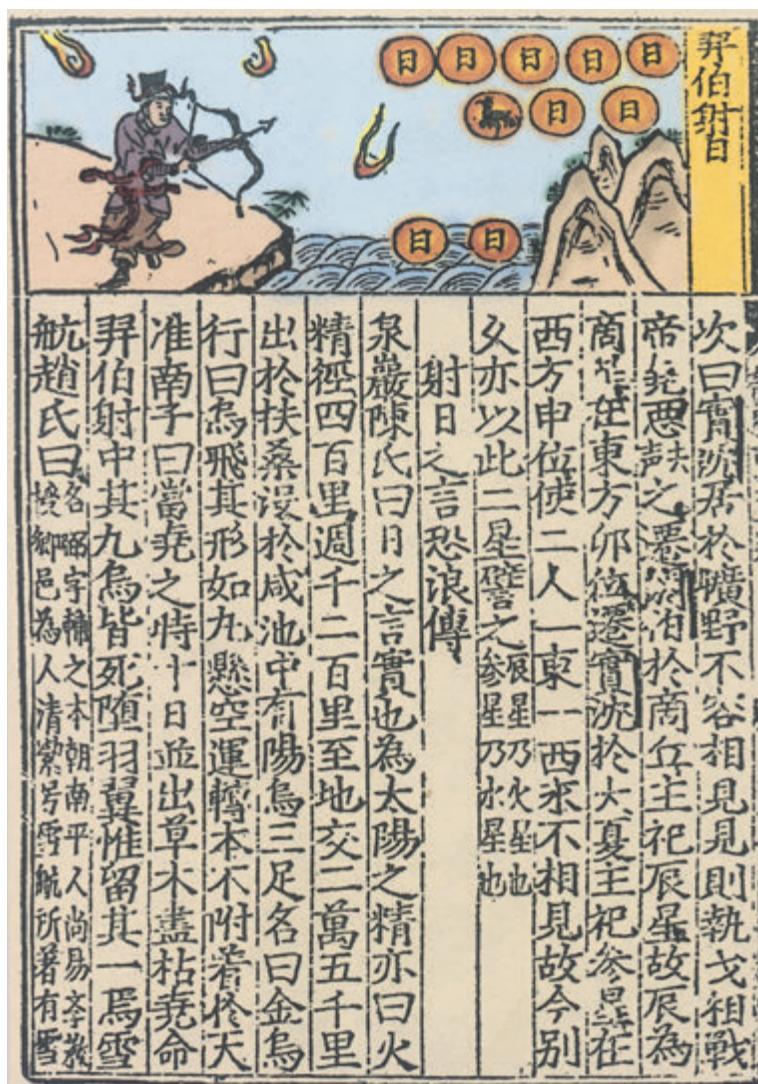 羿伯射日
日 日 日 日 日
日 日
日 日
次曰實沉居於曠野不容相見見則執戈相戰
帝堯惡去聲之遷閼伯於商丘主祀辰星故辰為
商星在東方卯位遷實沉於大夏主祀參星在
西方申位使二人一東一西永不相見故今別
久亦以此二星譬之辰星乃火星也參星乃水星也
射日之言恐浪傳
泉巖陳氏曰日之言實也為太陽之精亦曰火
精徑四百里週千二百里至地交二萬五千里
出於扶桑沒於咸池中有陽烏三足名曰金烏
行曰烏飛其形如丸懸空運轉本不附着於天
准南子曰當堯之時十日並出草木盡枯堯命
羿伯射中其九烏皆死堕羽翼惟留其一焉雪
航趙氏曰名弼字輔之本朝南平人尚易文教鄉邑為人清号雪航所著有雪